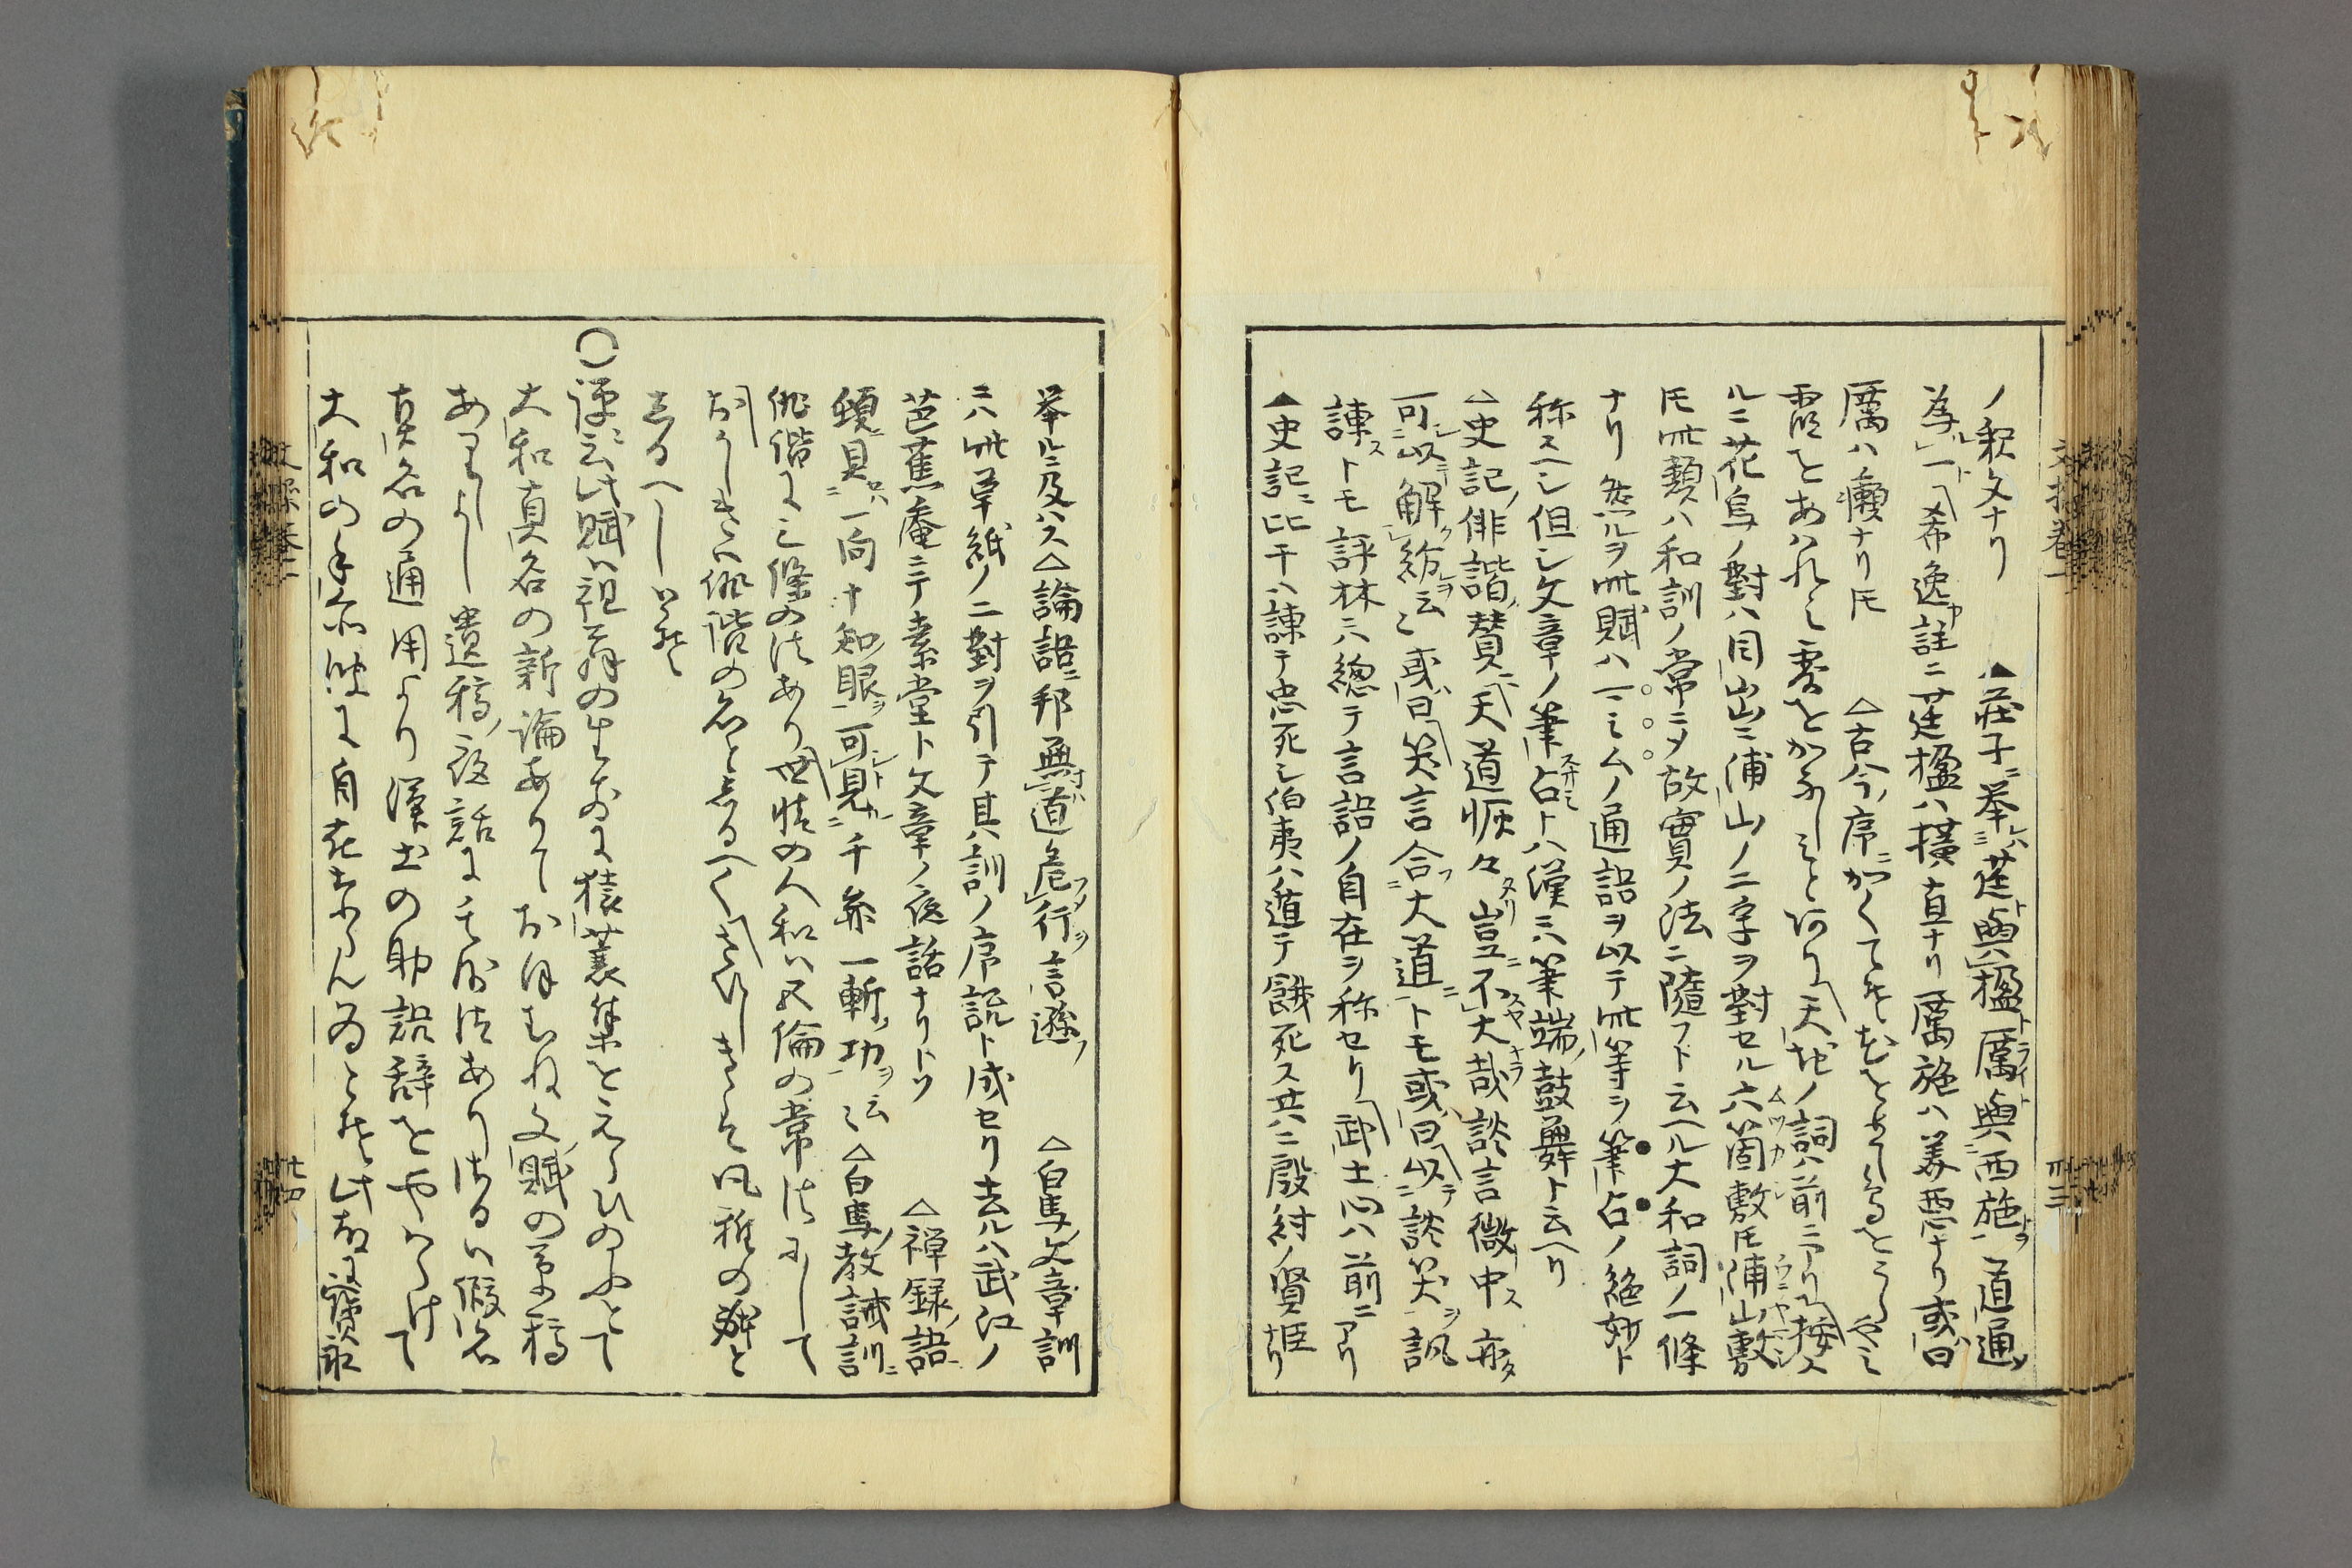 ノ釈文ナリ ▲莊子ニ挙莛與楹厲與西施道通
為一ト希逸註ニ莛楹ハ横直ナリ厲施ハ美悪ナリ或曰
厲ハ癩ナリ𪜈 △古今序ニかくてそ花をめて鳥をうらやみ
霞をあハれミ露をかなしミと 天地ノ詞ハ前ニアリ 接ス
ルニ花鳥ノ對ハ同山ニ浦山ノ二字ヲ對セル六箇敷𪜈浦山敷
𪜈此類ハ和訓ノ常ニメ故實ノ法ニ随フト云ヘル大和詞ノ一條
ナリ 然ルヲ此賦ハ一ミムノ通語ヲ以テ此等ヲ筆占ノ絶妙ト
称スヘシ但シ文章ノ筆占トハ漢ニハ筆端ノ鼓舞ト云ヘリ
△史記ノ俳諧ノ賛ニ天道恢々豈不大哉談言微中ス亦タ
可以解紛云々或曰笑言合大道トモ或曰以談笑ヲ諷
諫ストモ評林ニハ總テ言語ノ自在ヲ称セリ 武士ハ前ニアリ
▲史記ニ比干ハ諫テ忠死シ伯夷ハ道テ餓死ス共ニ殷紂ノ賢臣ナリ
挙ルニ及ハス △論語ニ邦無道危行言遜 △白馬ノ文章訓
ニハ此草紙ノ二對ヲ引テ其訓ノ序説ト成セリ去ルハ武江ノ
芭蕉庵ニテ素堂ト文章ノ夜話ナリトソ △禅録ノ語ニ
頓具一向十知眼可見千兵一斬功云々 △白馬ノ教誡訓ニ
俳諧に三條の法あり世情の人和ハ五倫の常法にして
おかしきハ俳諧の名としるへくさひしきハ風雅の躰と
しるへしとそ
〇謹云此賦ハ祖翁の生前に猿蓑集をえらひのふとて
大和真名の新論ありておほむね文賦の草稿
ありしよし遺稿ノ夜話に其法ありけるハ假名
真名の通用より漢土の助語辞をやハらけて
大和の自在ならんゐとそ此故に